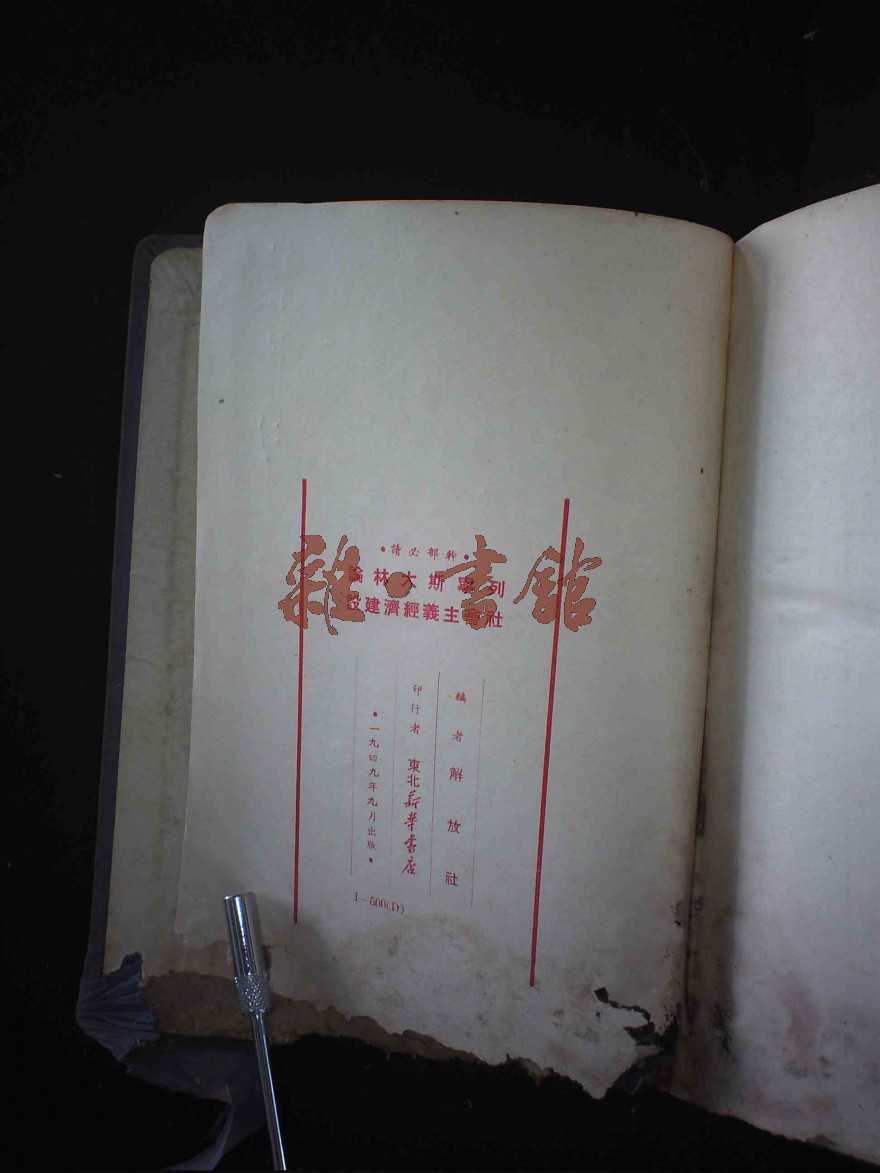 •幹部必讀•
列寧斯大林論
社會主義經濟建設
編者 解放社
印行者 東北新華書店
•一九四九年九月出版•
1—500(D)
雜·書館